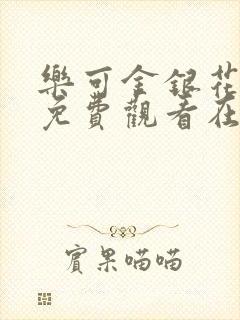 樂可金銀花
免費觀看在
賓果喵喵